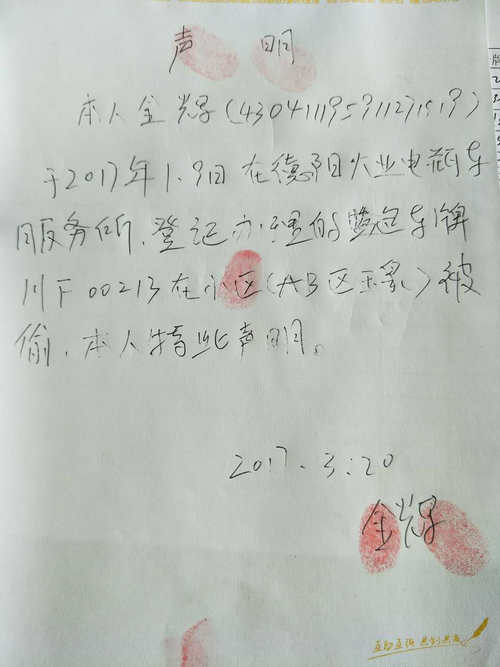 声 明
本人金辉(4304111959112719)
于2017年1.9日在德阳火业电瓶车
服务所、登记办理的电车牌
川F00213在小区(AB区)被
偷,本人特此声明。
2017.3.20
金辉